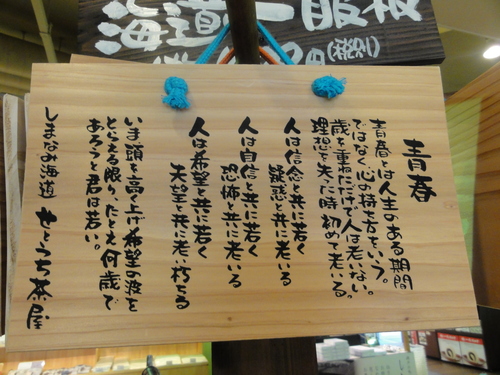 海道一服板
円(税別)
青春
青春とは人生のある期間
ではなく心の持ち方をいう。
歳を重ねただけで人は老いない。
理想を失う時初めて老いる。
人は信念と共に若く
疑惑と共に老いる
人は自信と共に若く
恐怖と共に老いる
人は希望と共に若く
失望と共に老い朽ちる
いま頭を高く上げ希望の波を
とらえる限り、たとえ何歳で
あろうと君は若い。
しまなみ海道 せとうち茶屋